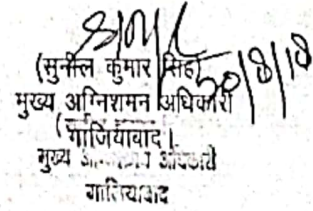 30/8/18
(सुनील कुमार सिंह)
मुख्य अग्निशमन अधिकारी
गाजियाबाद।
मुख्य अधिकारी
गाजियाबाद